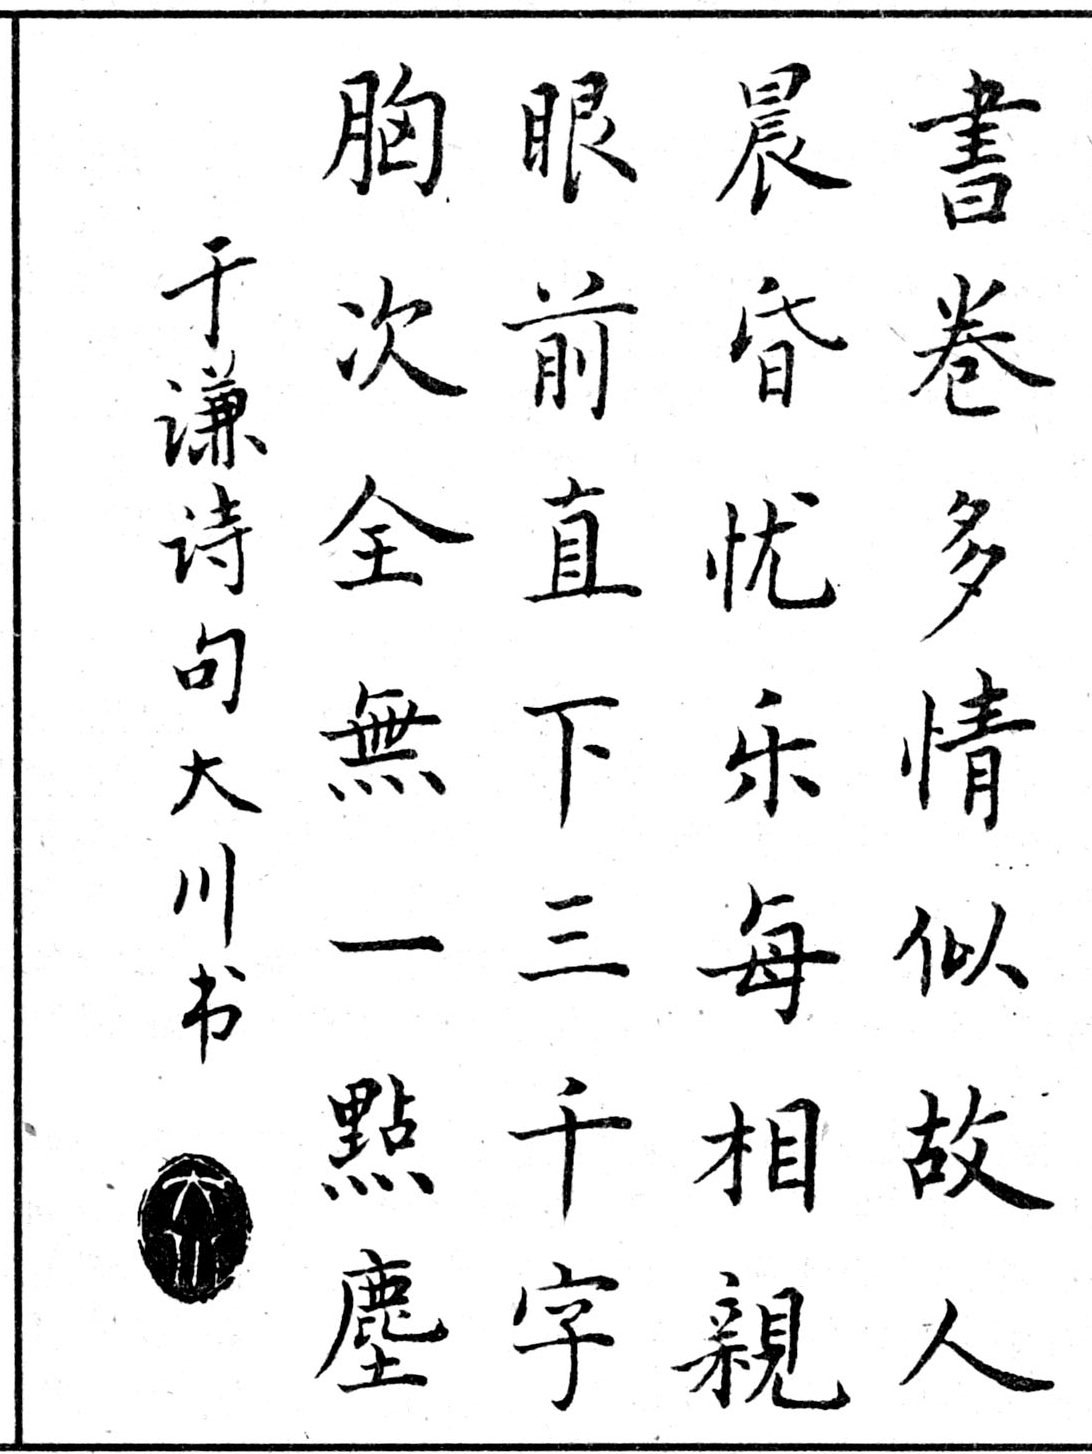 書卷多情似故人
晨昏忧乐每相親
眼前直下三千字
胸次全無一點塵
于谦诗句大川书